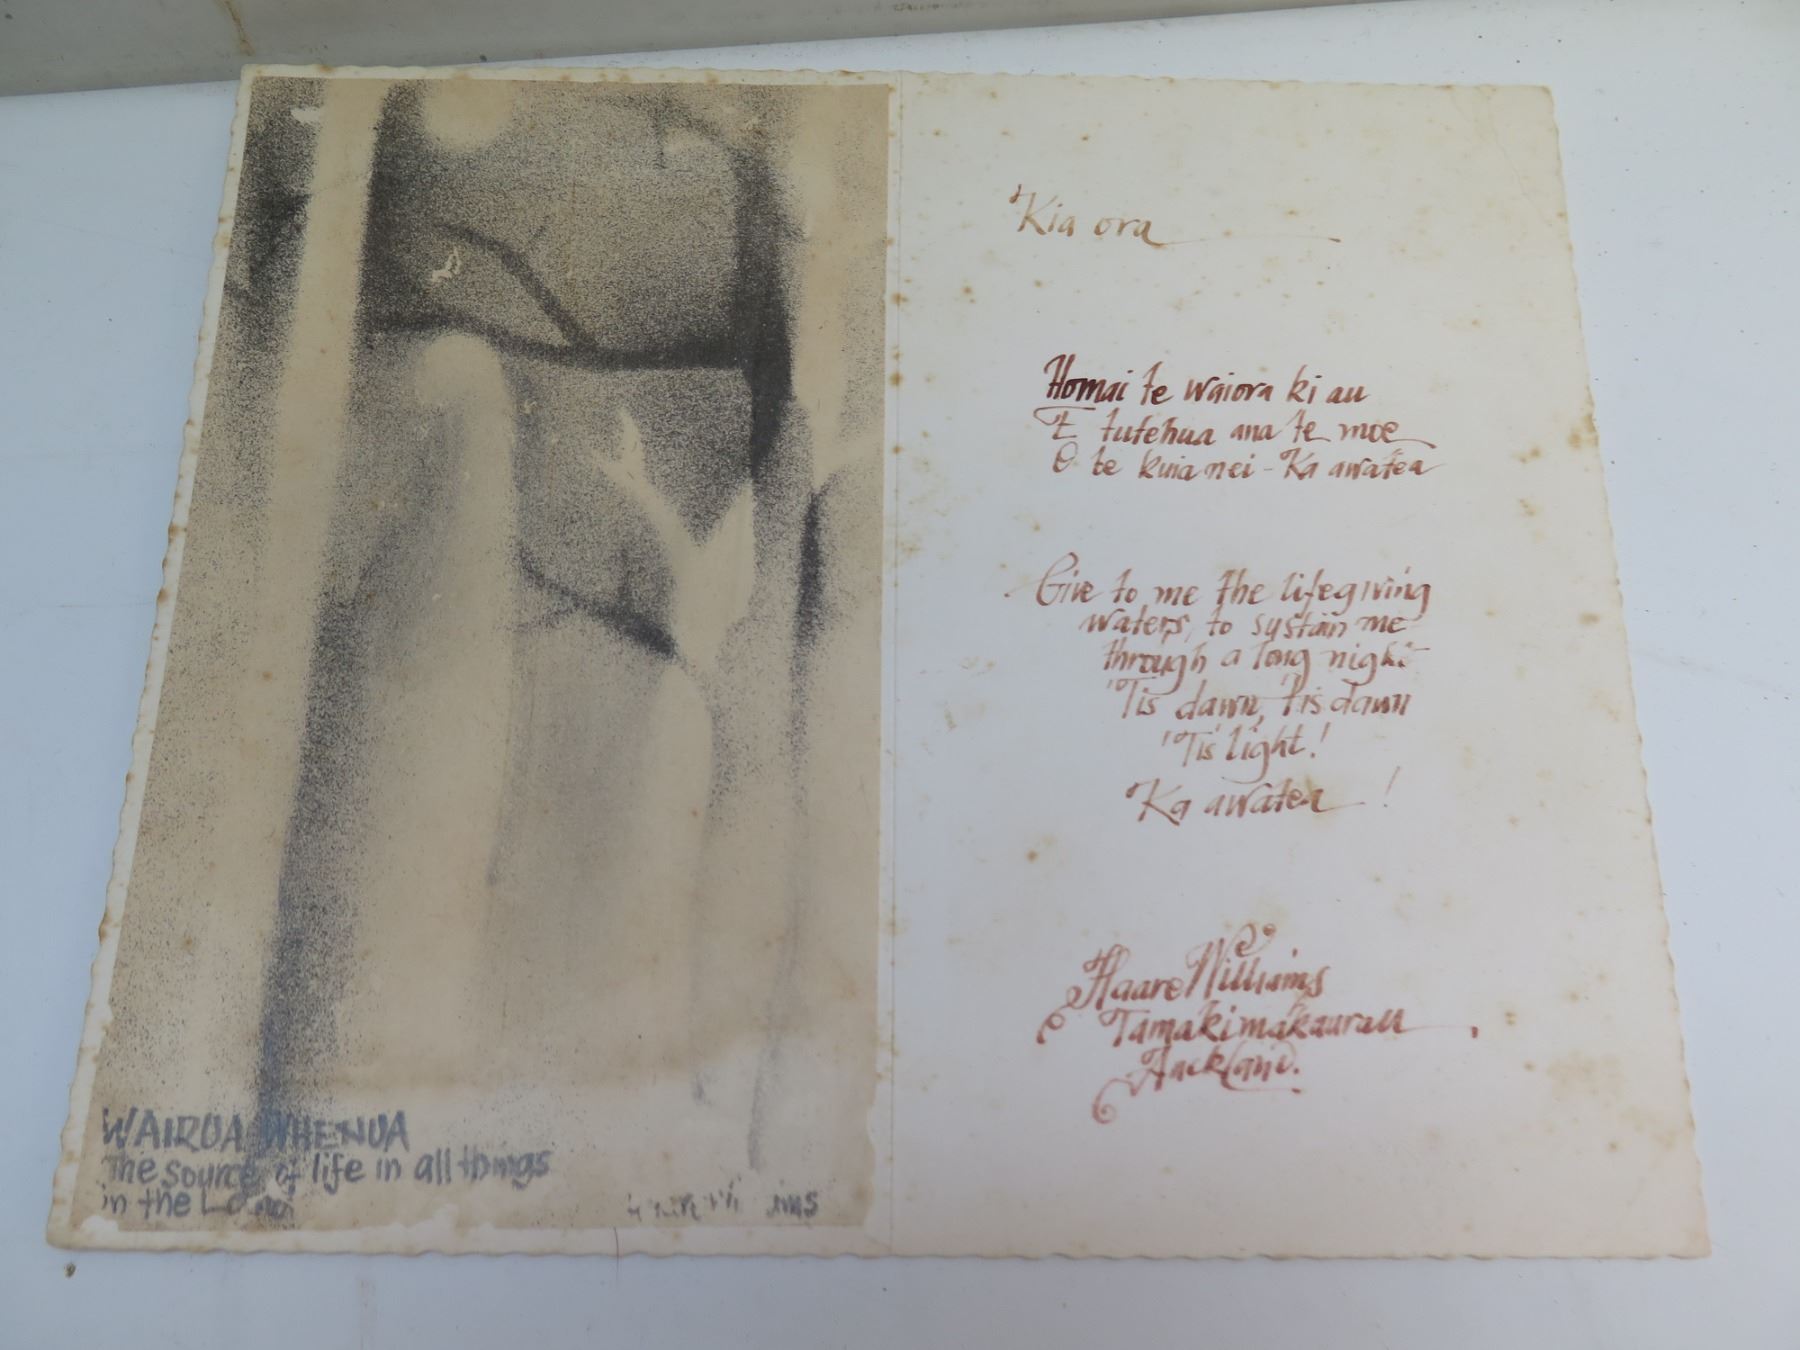 WAIRUA WHENUA
The source of life in all things
in the Land
Kia ora
Homai te waiora ki au
E tutehua ana te moe
O te kuia nei - Ka awatea
Give to me the lifegiving
waters, to sustain me
through a long night
'Tis dawn, 'tis dawn
'Tis light!
Ka awatea !
Haare Williams
Tamakimakaurau
Auckland.